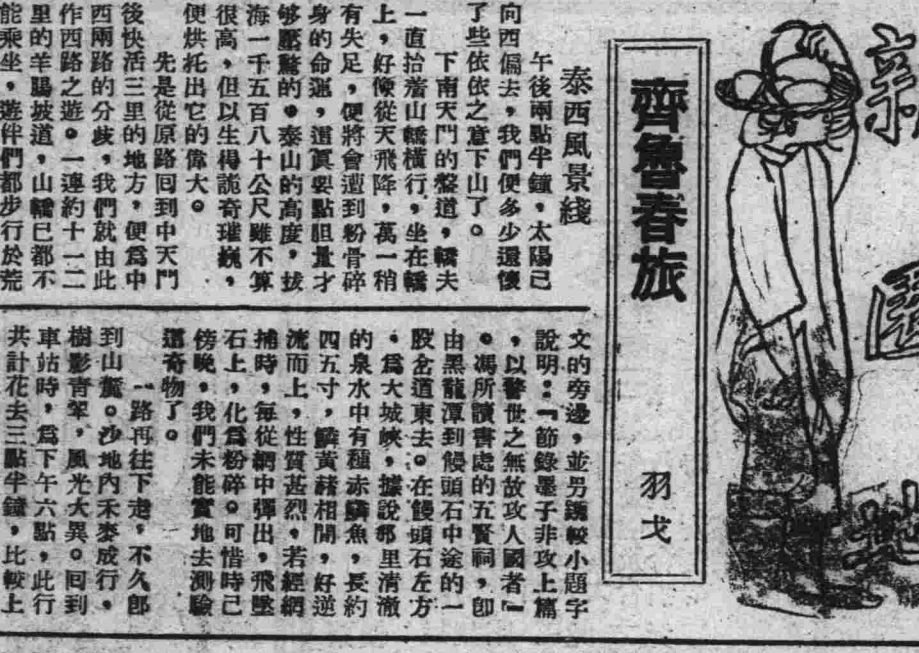 齊魯春旅
羽戈
泰西風景綫
午後兩點半鐘，太陽已
向西偏去，我們便多少還懷
了些依依之意下山了。
下南天門的盤道，轎夫
一直抬着山轎橫行，坐在轎
上，好像從天飛降，萬一稍
有失足，便將會遭到粉骨碎
身的命運，這眞要點胆量才
够壓驚的。泰山的高度，拔
海一千五百八十公尺雖不算
很高，但以生得詭奇璀巍，
便烘托出它的偉大。
先是從原路回到中天門
後快活三里的地方，便爲中
西兩路的分歧，我們就由此
作西路之遊。一連約十一二
里的羊腸坡道，山轎已都不
能乘坐，遊伴們都步行於荒
文的旁邊，並另鐫較小題字
說明：『節錄墨子非攻上篇
，以警世之無故攻人國者』
。馮所讀書處的五賢祠，卽
由黑龍潭到饅頭石中途的一
股岔道東去。在饅頭石左方
，爲大城峽，據說那里清澈
的泉水中有種赤鱗魚，長約
四五寸，鱗黃赭相間，好逆
流而上，性質甚烈，若經網
捕時，每從網中彈出，飛墜
石上，化爲粉碎。可惜時已
傍晚，我們未能實地去測驗
這奇物了。
一路再往下走，不久郎
到山麓。沙地內禾麥成行，
樹影青翠，風光大異。回到
車站時，爲下午六點，此行
共計花去三點半鐘，比較上